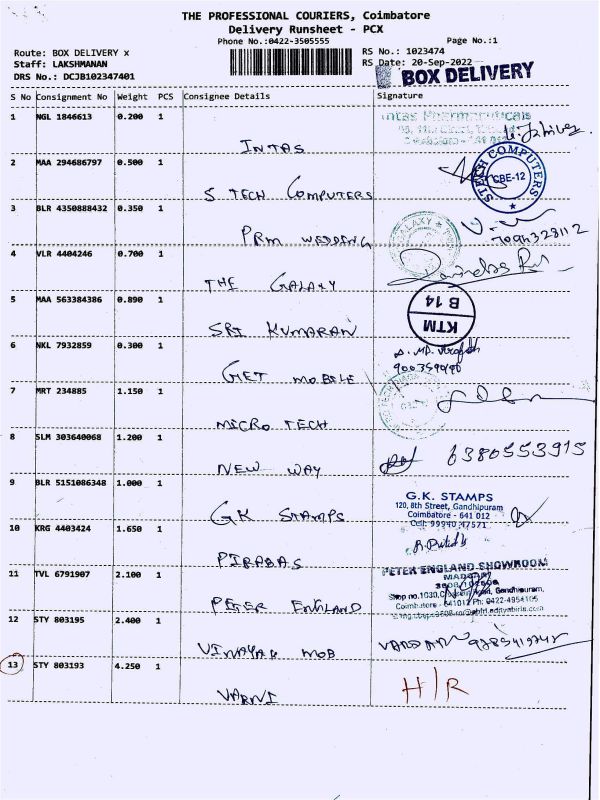 THE PROFESSIONAL COURIERS, Coimbatore
Delivery Runsheet - PCX
Phone No.:0422-3505555 Page No.:1
Route: BOX DELIVERY x RS No.: 1023474
Staff: LAKSHMANAN RS Date: 20-Sep-2022
DRS No.: DCJB102347401 BOX DELIVERY
S No Consignment No Weight PCS Consignee Details Signature
1 NGL 1846613 0.200 1
INTAS
Intas Pharmaceuticals
2 MAA 294686797 0.500 1
S TECH COMPUTERS
STECH COMPUTERS CBE-12
3 BLR 4350888432 0.350 1
PRM WEDDING
7094328112
4 VLR 4404246 0.700 1
THE GALAXY
GALAXY
5 MAA 563384386 0.890 1
SRI KUMARAN
KTM B 14
6 NKL 7932859 0.300 1
GET MOBILE
7 MRT 234885 1.150 1
MICRO TECH
8 SLM 303640068 1.200 1
NEW WAY
6380553915
9 BLR 5151086348 1.000 1
GK STAMPS
G.K. STAMPS
120, 8th Street, Gandhipuram
Coimbatore - 641 012
Cell: 99940 47571
10 KRG 4403424 1.650 1
PIRABAS
11 TVL 6791907 2.100 1
PETER ENGLAND
PETER ENGLAND SHOWROOM
MADURA
Shop no.1030, Road, Gandhipuram,
Coimbatore - 641012 Ph: 0422-4954105
12 STY 803195 2.400 1
VINAYAK MOB
13 STY 803193 4.250 1
VARNI
H/R